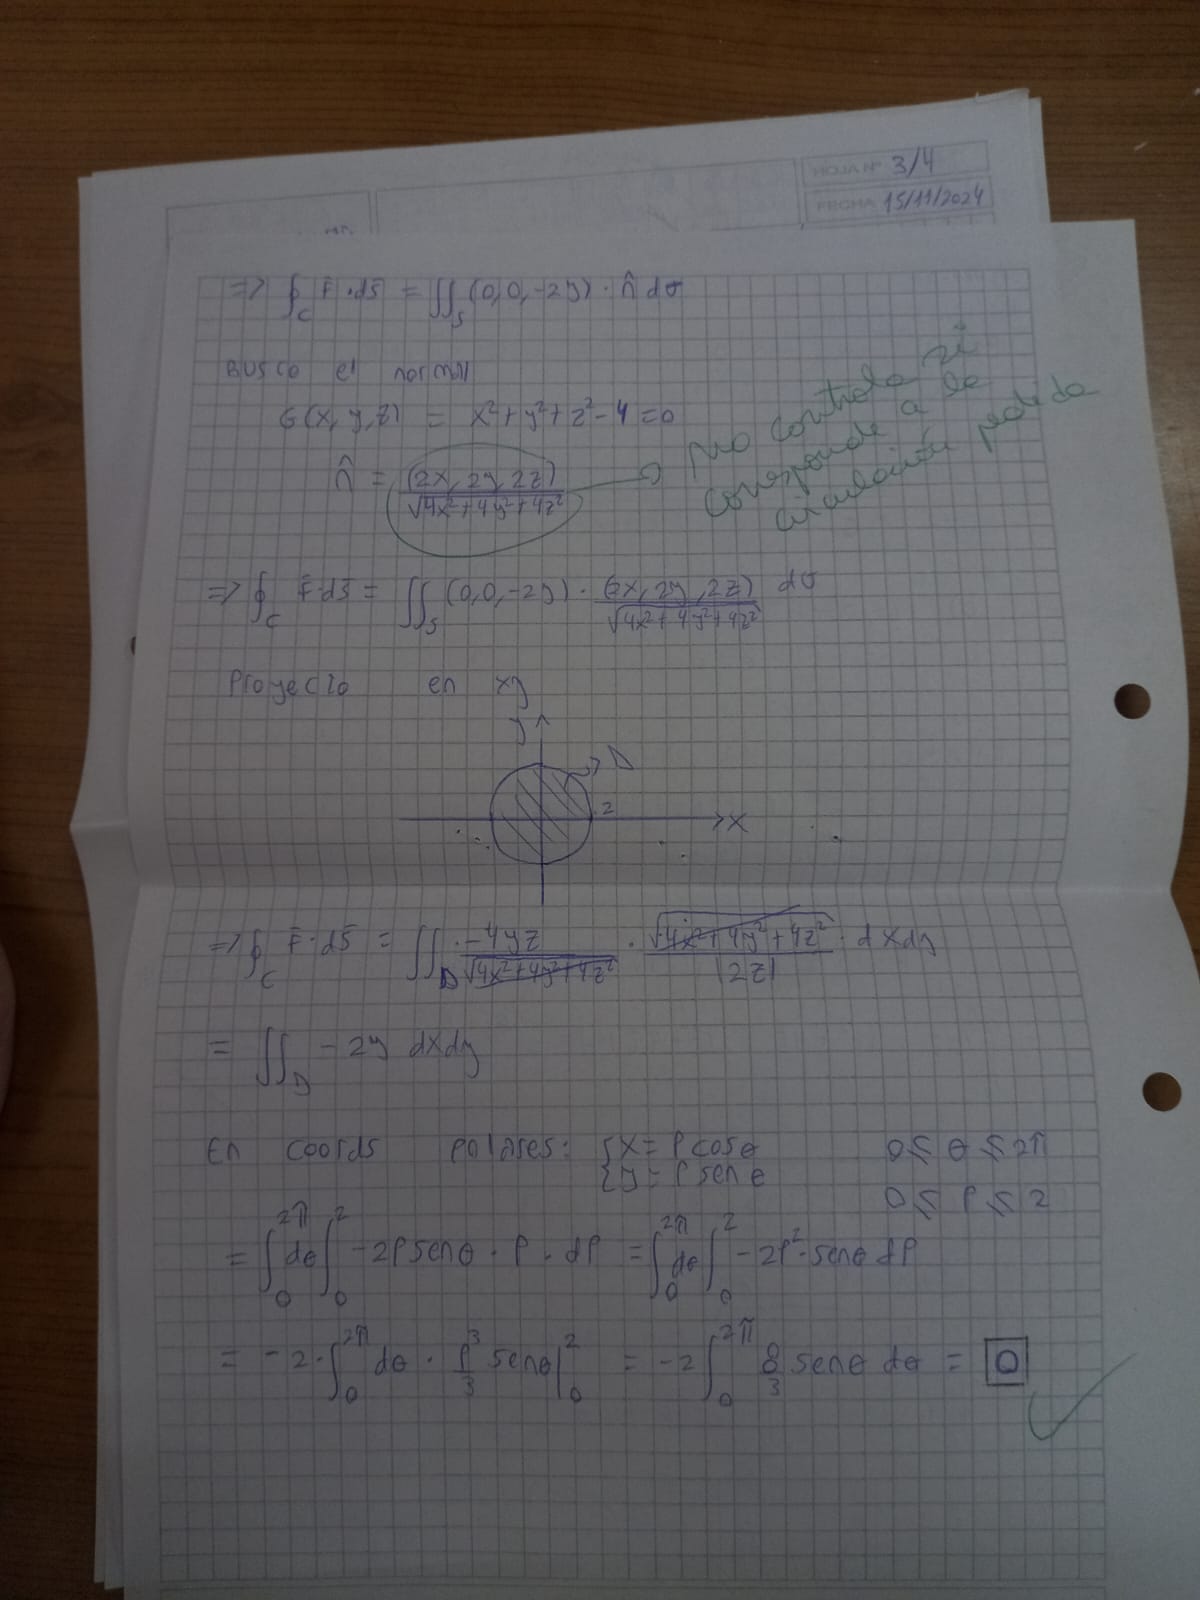 HOJA Nº 3/4
FECHA 15/11/2024
=> ∮_C F̄·ds̄ = ∬_S (0,0,-2y) · n̂ dσ
BUSCO el normal
G(x,y,z) = x²+y²+z²-4=0
n̂ = (2x,2y,2z) / √(4x²+4y²+4z²)
No controla si
corresponde a la
circulación pedida
=> ∮_C F̄·ds̄ = ∬_S (0,0,-2y) · (2x,2y,2z) / √(4x²+4y²+4z²) dσ
Proyecto en xy
y
D
2
x
=> ∮_C F̄·ds̄ = ∬_D -4yz / √(4x²+4y²+4z²) · √(4x²+4y²+4z²) / |2z| · dxdy
= ∬_D -2y dxdy
En coords polares: { x = ρ cosθ 0 ≤ θ ≤ 2π
{ y = ρ senθ
0 ≤ ρ ≤ 2
= ∫_0^2π dθ ∫_0^2 -2ρ senθ · ρ · dρ = ∫_0^2π dθ ∫_0^2 -2ρ² · senθ dρ
= -2 · ∫_0^2π dθ · ρ³/3 senθ |_0^2 = -2 ∫_0^2π 8/3 senθ dθ = 0